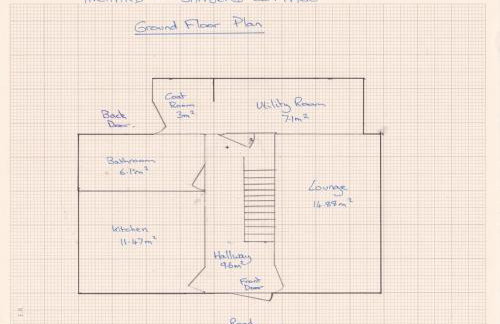 Ground Floor Plan
Coat
Room
3m²
Utility Room
7.1m²
Back
Door
Bathroom
6.1m²
Lounge
14.88m²
Kitchen
11.47m²
Hallway
9.6m²
Front
Door
Road